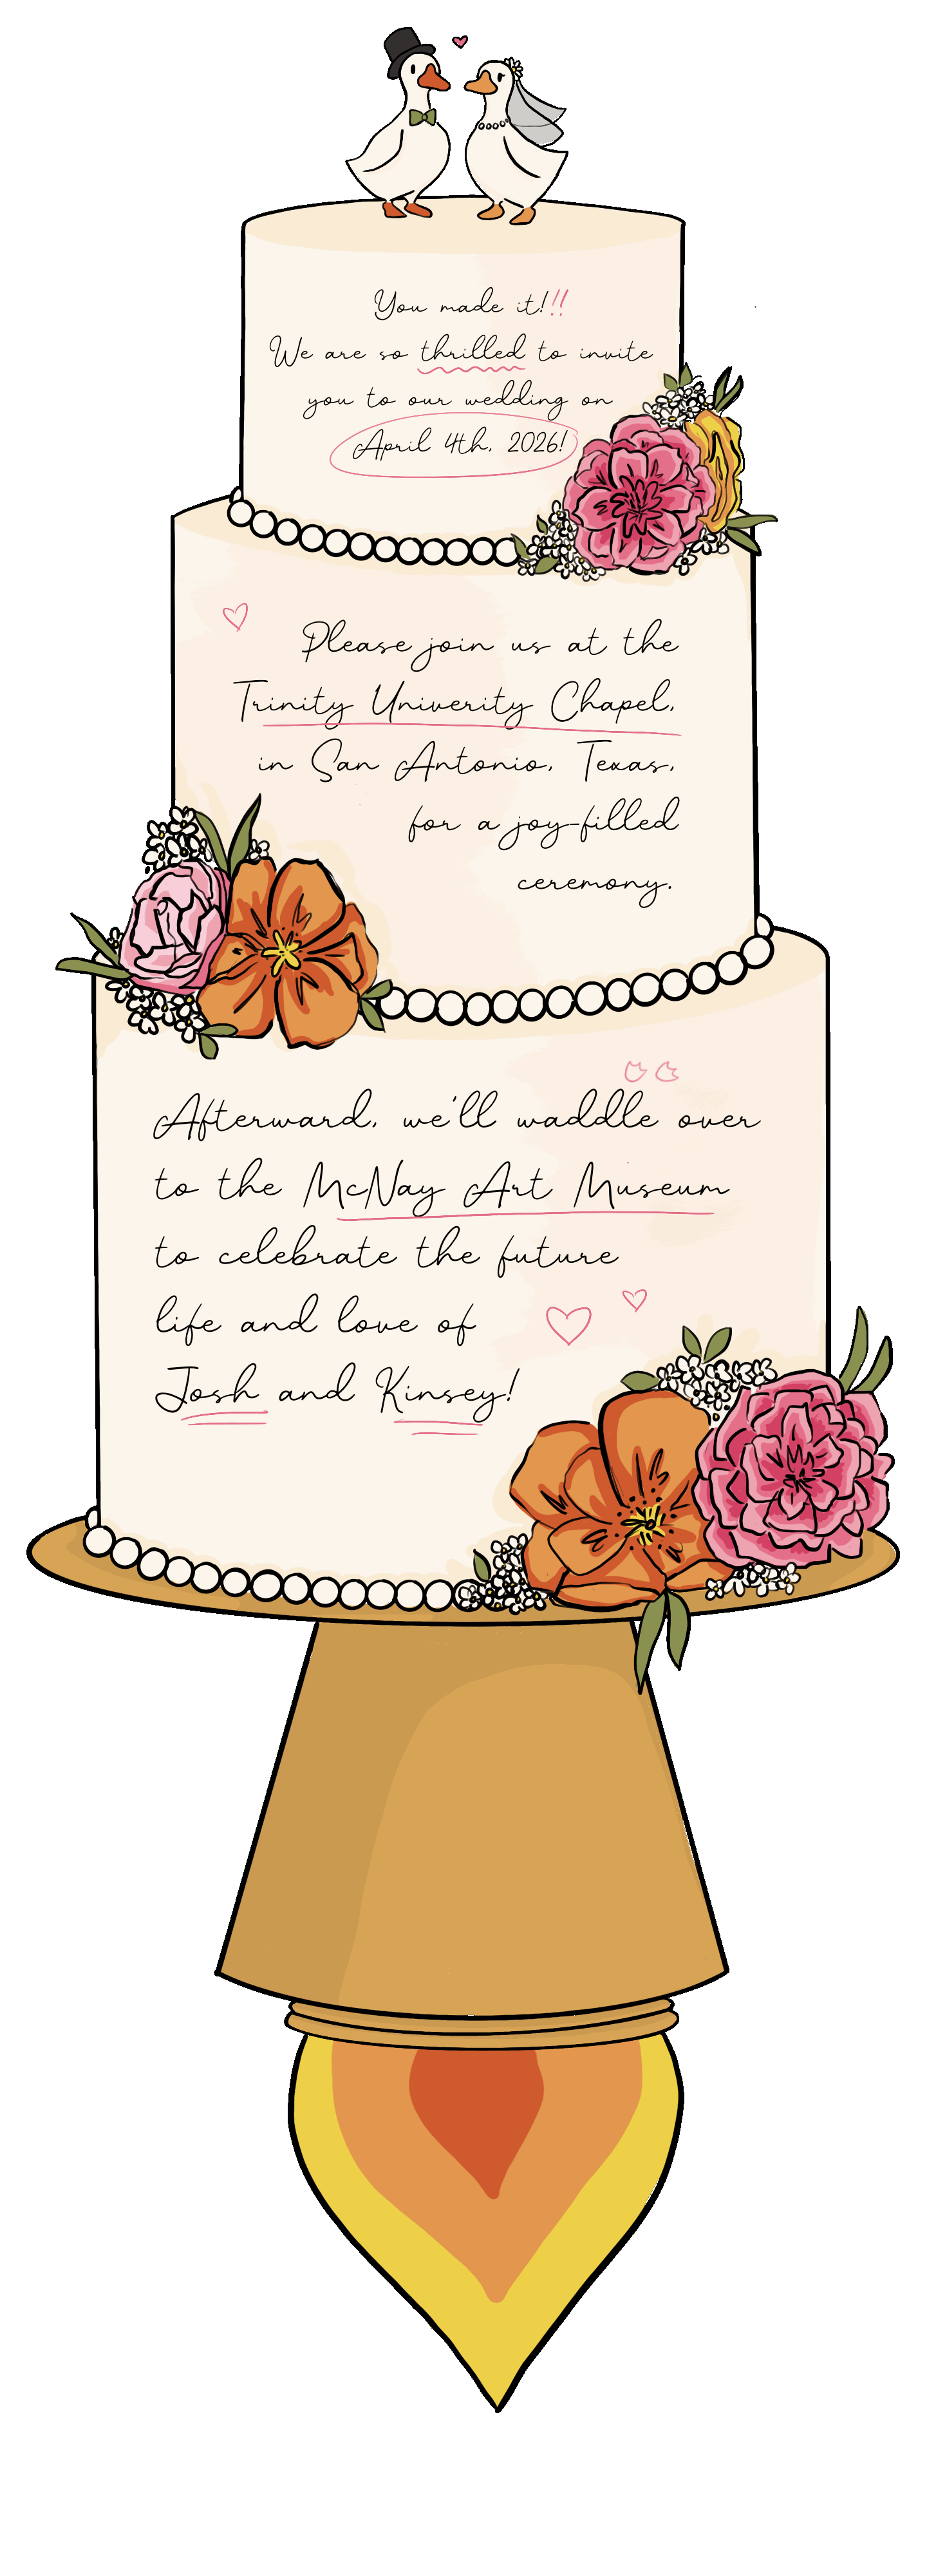 You made it!!!
We are so thrilled to invite
you to our wedding on
April 4th, 2026!
Please join us at the
Trinity Univerity Chapel,
in San Antonio, Texas,
for a joy-filled
ceremony.
Afterward, we'll waddle over
to the McNay Art Museum
to celebrate the future
life and love of
Josh and Kinsey!